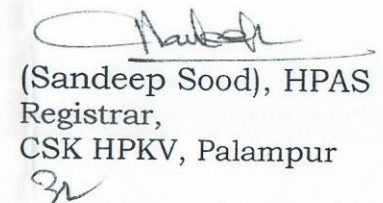 (Sandeep Sood), HPAS
Registrar,
CSK HPKV, Palampur